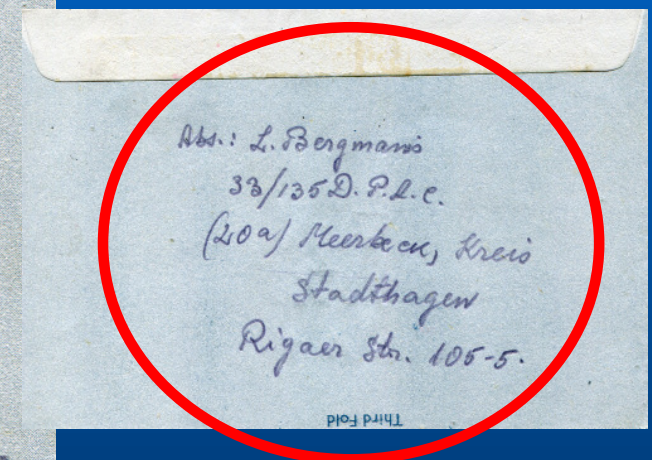 Abs.: L. Bergmanis
33/135 D. P. A. C.
(20a) Meerbeck, Kreis
Stadthagen
Rigaer Str. 105-5.
Third Fold